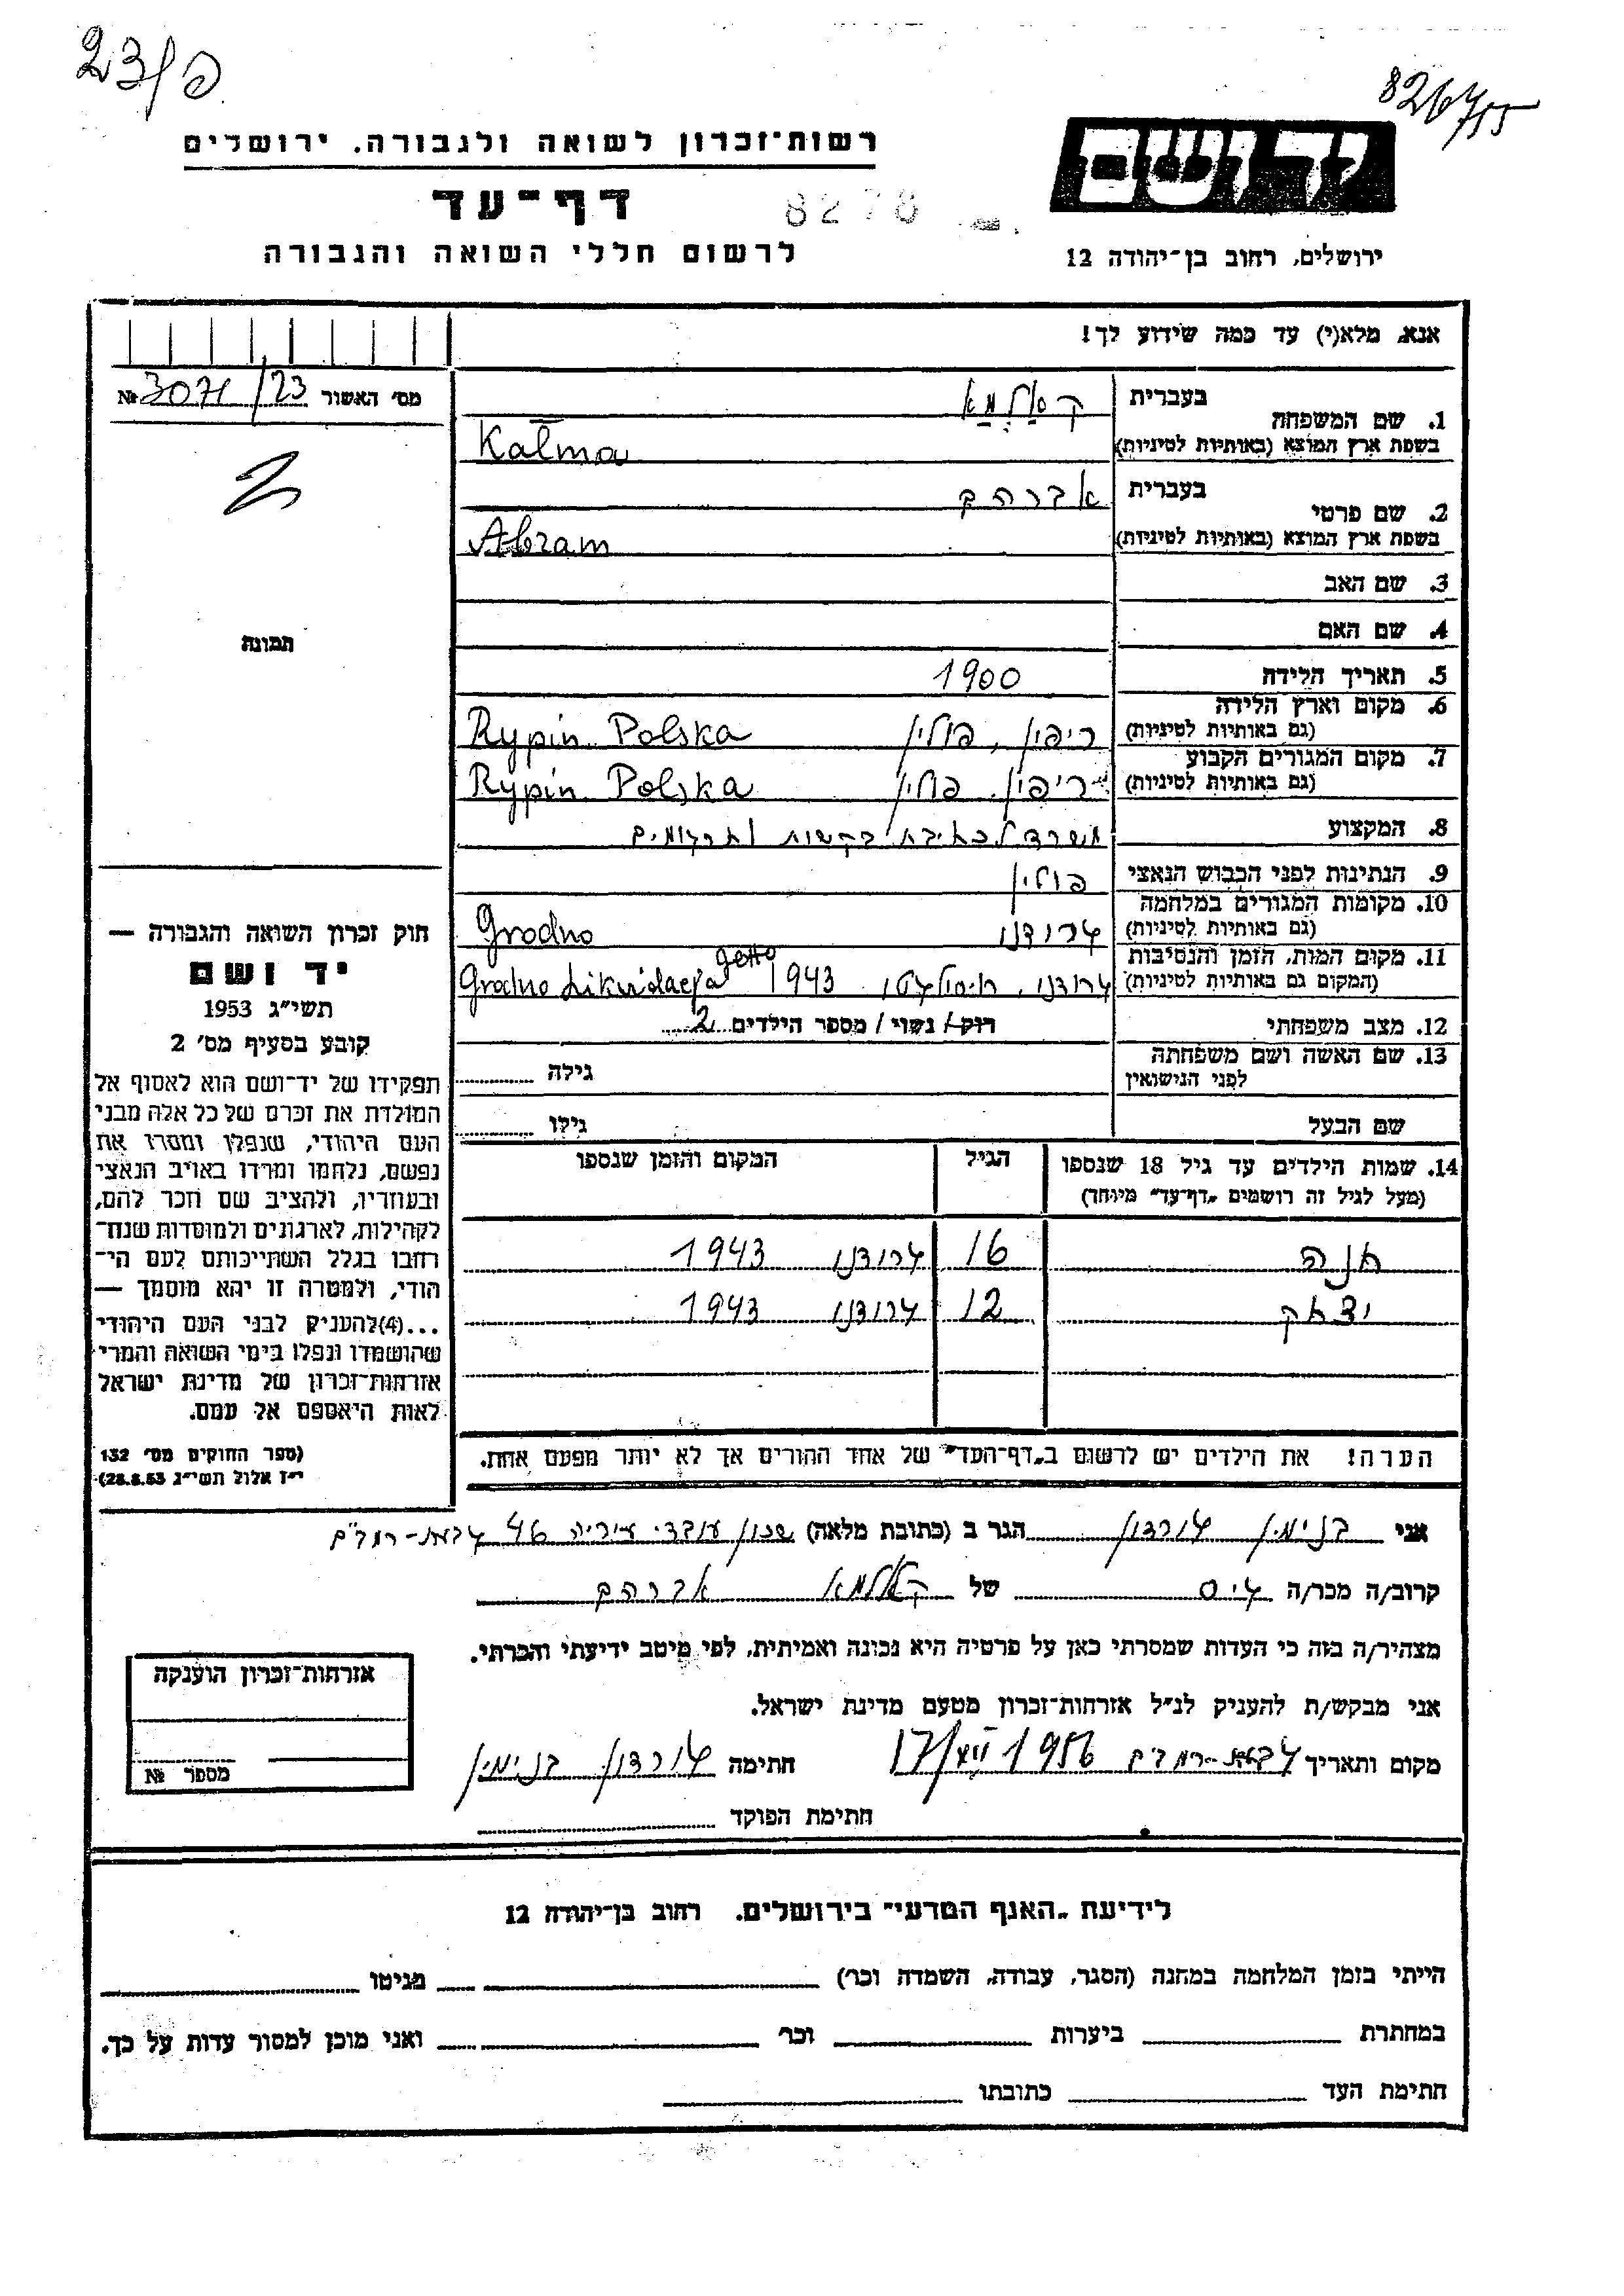 23/פ
826/55
רשות־זכרון לשואה ולגבורה, ירושלים
יד ושם
דף־עד
8278
לרשום חללי השואה והגבורה
ירושלים, רחוב בן־יהודה 12
אנא, מלא(י) עד כמה שידוע לך!
מס' האשור № 3071/23
תמונה
1. שם המשפחה
בעברית קאלמא
בשפת ארץ המוצא (באותיות לטיניות) Kalma
2. שם פרטי
בעברית אברהם
בשפת ארץ המוצא (באותיות לטיניות) Abram
3. שם האב
4. שם האם
5. תאריך הלידה 1900
6. מקום וארץ הלידה
(גם באותיות לטיניות) ריפין, פולין Rypin Polska
7. מקום המגורים הקבוע
(גם באותיות לטיניות) ריפין, פולין Rypin Polska
8. המקצוע משרד לכתיבת בקשות ותרגומים
9. הנתינות לפני הכבוש הנאצי פולין
10. מקומות המגורים במלחמה
(גם באותיות לטיניות) גרודנו Grodno
11. מקום המות, הזמן והנסיבות
(המקום גם באותיות לטיניות) גרודנו, 1943 Grodno Likwidacja getto
12. מצב משפחתי רוק/ נשוי/ מספר הילדים 2
13. שם האשה ושם משפחתה
לפני הנישואין גילה
שם הבעל גילו
14. שמות הילדים עד גיל 18 שנספו
(מעל לגיל זה רושמים „דף־עד" מיוחד)
הגיל
המקום והזמן שנספו
חנה 16 גרודנו 1943
יצחק 12 גרודנו 1943
הערה! את הילדים יש לרשום ב„דף־העד" של אחד ההורים אך לא יותר מפעם אחת.
חוק זכרון השואה והגבורה —
יד ושם
תשי"ג 1953
קובע בסעיף מס' 2
תפקידו של יד־ושם הוא לאסוף אל
המולדת את זכרם של כל אלה מבני
העם היהודי, שנפלו ומסרו את
נפשם, נלחמו ומרדו באויב הנאצי
ובעוזריו, ולהציב שם וזכר להם,
לקהילות, לארגונים ולמוסדות שנח־
רחבו בגלל השתייכותם לעם הי־
הודי, ולמטרה זו יהא מוסמך —
...(4)להעניק לבני העם היהודי
שהושמדו ונפלו בימי השואה והמרי
אזרחות־זכרון של מדינת ישראל
לאות היאספם אל עמם.
(ספר החוקים מס' 132
י"ז אלול תשי"ג 28.8.53)
אני בנימין גורדון הגר ב (כתובת מלאה) שכון עובדי עיריה 46 גבעת-רמב"ם
קרוב/ה מכר/ה גיס של קאלמא אברהם
מצהיר/ה בזה כי העדות שמסרתי כאן על פרטיה היא נכונה ואמיתית, לפי מיטב ידיעתי והכרתי.
אני מבקש/ת להעניק לנ"ל אזרחות־זכרון מטעם מדינת ישראל.
מקום ותאריך גבעת-רמב"ם 17/VII 1956 חתימה גורדון בנימין
חתימת הפוקד
אזרחות־זכרון הוענקה
מספר №
לידיעת „האגף המדעי" בירושלים, רחוב בן־יהודה 12
הייתי בזמן המלחמה במחנה (הסגר, עבודה, השמדה וכו') מגיטו
במחתרת ביערות וכו' ואני מוכן למסור עדות על כך.
חתימת העד כתובתו